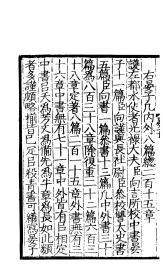 右晏子凡內外八篇總二百一十五章
護左都水使者光祿大夫臣向言所校中書晏
子十一篇臣向謹與長社尉臣參校讎太史書
五篇臣向書一篇參書十三篇凡中外書三十
篇為八百三十八章除復重二十二篇六百三
十八章定著八篇二百一十五章外書無有三
十六章中書無有七十一章中外皆有以相定
中書以夭為芳又為備先為牛章為長如此類
者多謹頗略椾皆已定以殺青書可繕寫晏子